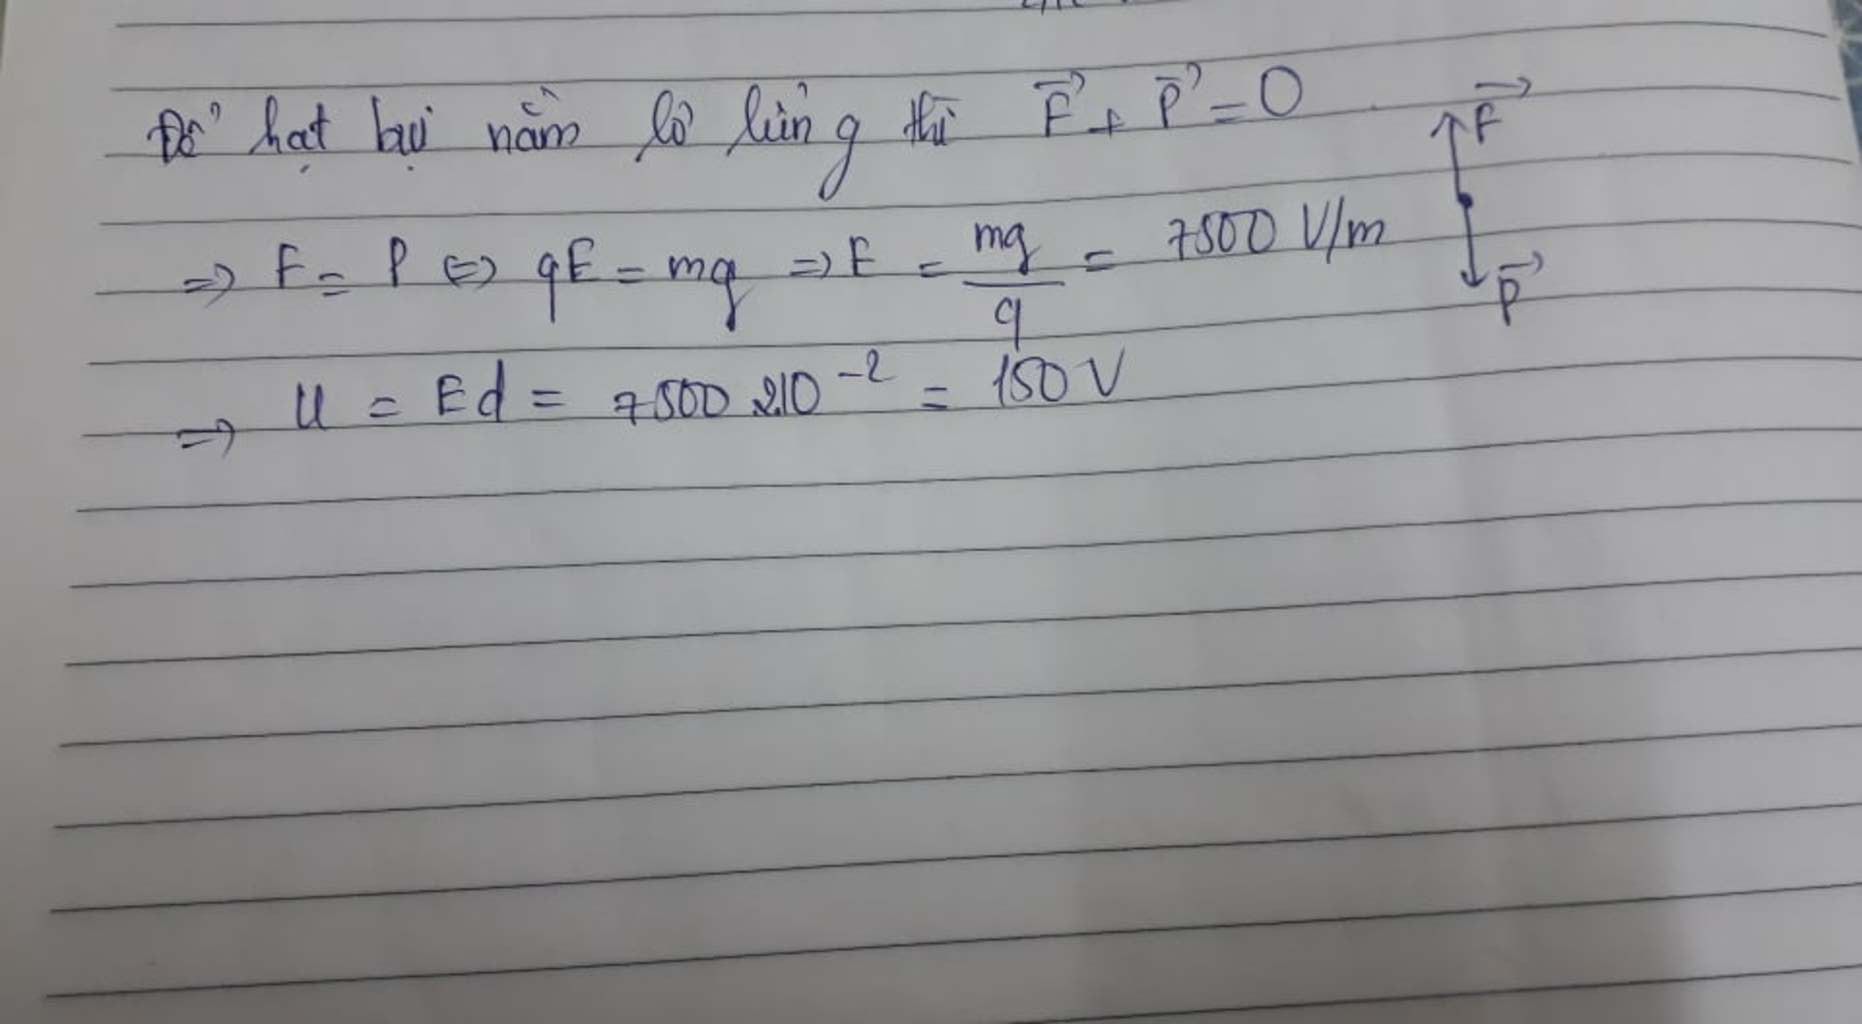 Để hạt bụi nằm lơ lửng thì F⃗ + P⃗ = 0
F⃗
⇒ F = P ⇔ qE = mg ⇒ E = mg/q = 7500 V/m
P⃗
⇒ U = Ed = 7500.2.10⁻² = 150 V